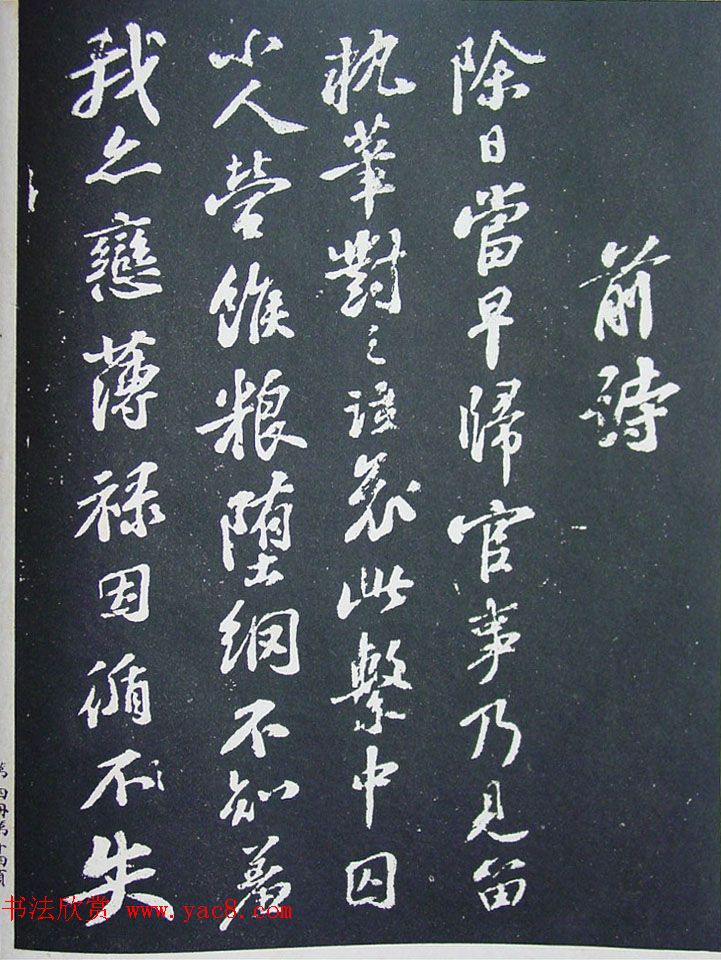 前詩
除日當早歸官事乃見留
執筆對之泣哀此繫中囚
小人營餱粮堕網不知羞
我亦戀薄禄因循不失
第四冊第十四頁
书法欣赏 www.yac8.com